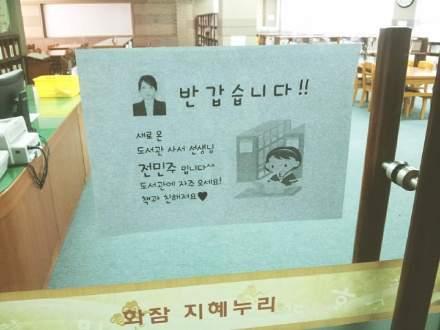 반갑습니다!!
새로 온
도서관 사서 선생님
전민주 입니다^^
도서관에 자주 오세요!
책과 친해져요♥
화잠 지혜누리